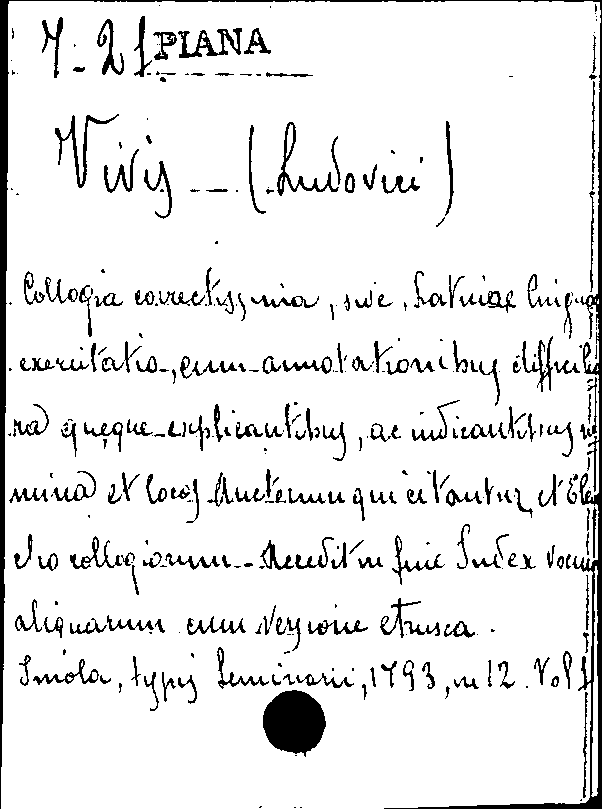 7-21 PIANA
Vivis - (Ludovici)
Collogia correctissima, sive, Latinae Lingu
exercitatio, cum annotationibus difficilio
ra queque explicantibus, ac indicantibus
mina et locos Auctorum qui citantur, et Ele
cho collogiorum - Accedit in fine Index vocum
aliquarum cum Versione etrusca.
Imola, typis Seminarii, 1793, in 12. Vol 1